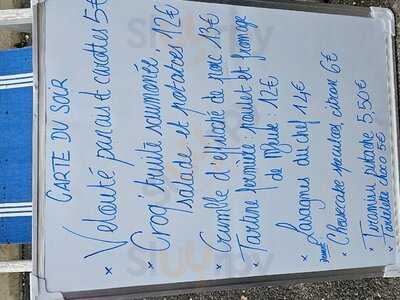 CARTE DU SOIR
* Velouté panais et carottes 5€
* Croq'truite saumonée,
salade et potatoes : 12€
* Crumble d'effiloché de porc 13€
* Tartine fermière : poulet et fromage
de Meuse : 12€
* Lasagnes du chef 14€
* Cheesecake speculoos citron 6€
* Tiramisu pistache 5,50€
* Tartelette choco 5€